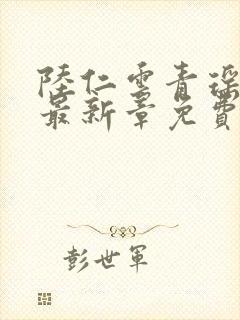 陸仁雲青瑶
最新章免費
彭世軍